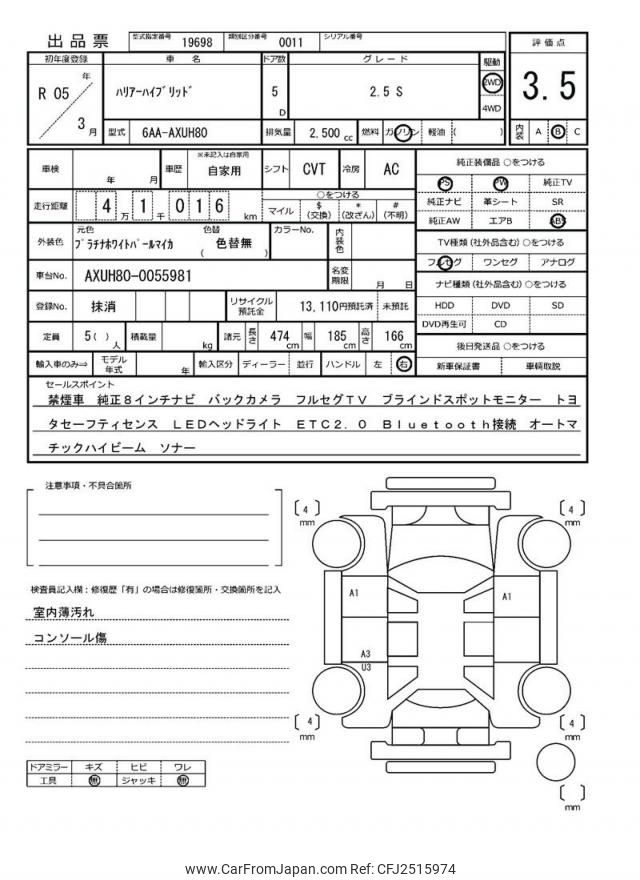 出品票 型式指定番号 19698 類別区分番号 0011 シリアル番号
初年度登録 車名 ドア数 グレード 駆動 評価点
R 05 年 3 月 ハリアーハイブリッド 5 D 2.5 S 2WD 4WD 3.5
型式 6AA-AXUH80 排気量 2,500 cc 燃料 ガソリン 軽油 ( ) 内装 A B C
車検 年 月 車歴 ※未記入は自家用 自家用 シフト CVT 冷房 AC 純正装備品 ○をつける
PS PW 純正TV
走行距離 4 万 1 千 0 1 6 km ○をつける マイル $ (交換) * (改ざん) # (不明) 純正ナビ 革シート SR
純正AW エアB ABS
外装色 元色 プラチナホワイトパールマイカ 色替 ( 色替無 ) カラーNo. 内装色 TV種類(社外品含む)○をつける
フルセグ ワンセグ アナログ
車台No. AXUH80-0055981 名変期限 月 日 ナビ種類(社外品含む)○をつける
登録No. 抹消 リサイクル預託金 13,110円預託済 未預託 HDD DVD SD
DVD再生可 CD
定員 5( ) 人 積載量 kg 諸元 長さ 474 cm 幅 185 cm 高さ 166 cm 後日発送品 ○をつける
輸入車のみ⇒ モデル年式 年 輸入区分 ディーラー 並行 ハンドル 左 右 新車保証書 車輌取説
セールスポイント
禁煙車 純正8インチナビ バックカメラ フルセグTV ブラインドスポットモニター トヨ
タセーフティセンス LEDヘッドライト ETC2.0 Bluetooth接続 オートマ
チックハイビーム ソナー
注意事項・不具合箇所
検査員記入欄:修復歴「有」の場合は修復箇所・交換箇所を記入
室内薄汚れ
コンソール傷
ドアミラー キズ ヒビ ワレ
工具 無 ジャッキ 無
4 mm
4 mm
A1
A1
A3
U3
4 mm
4 mm
mm
www.CarFromJapan.com Ref: CFJ2515974